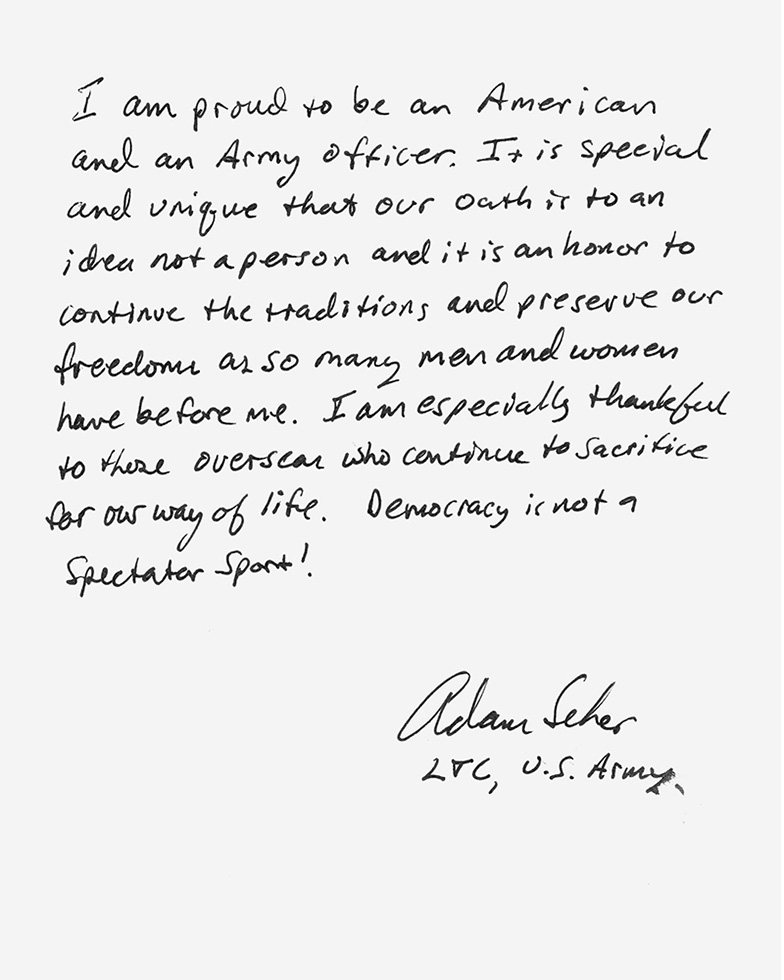 I am proud to be an American
and an Army officer. It is special
and unique that our oath is to an
idea not a person and it is an honor to
continue the traditions and preserve our
freedoms as so many men and women
have before me. I am especially thankful
to those overseas who continue to sacrifice
for our way of life. Democracy is not a
Spectator Sport!
Adam Scher
LTC, U.S. Army